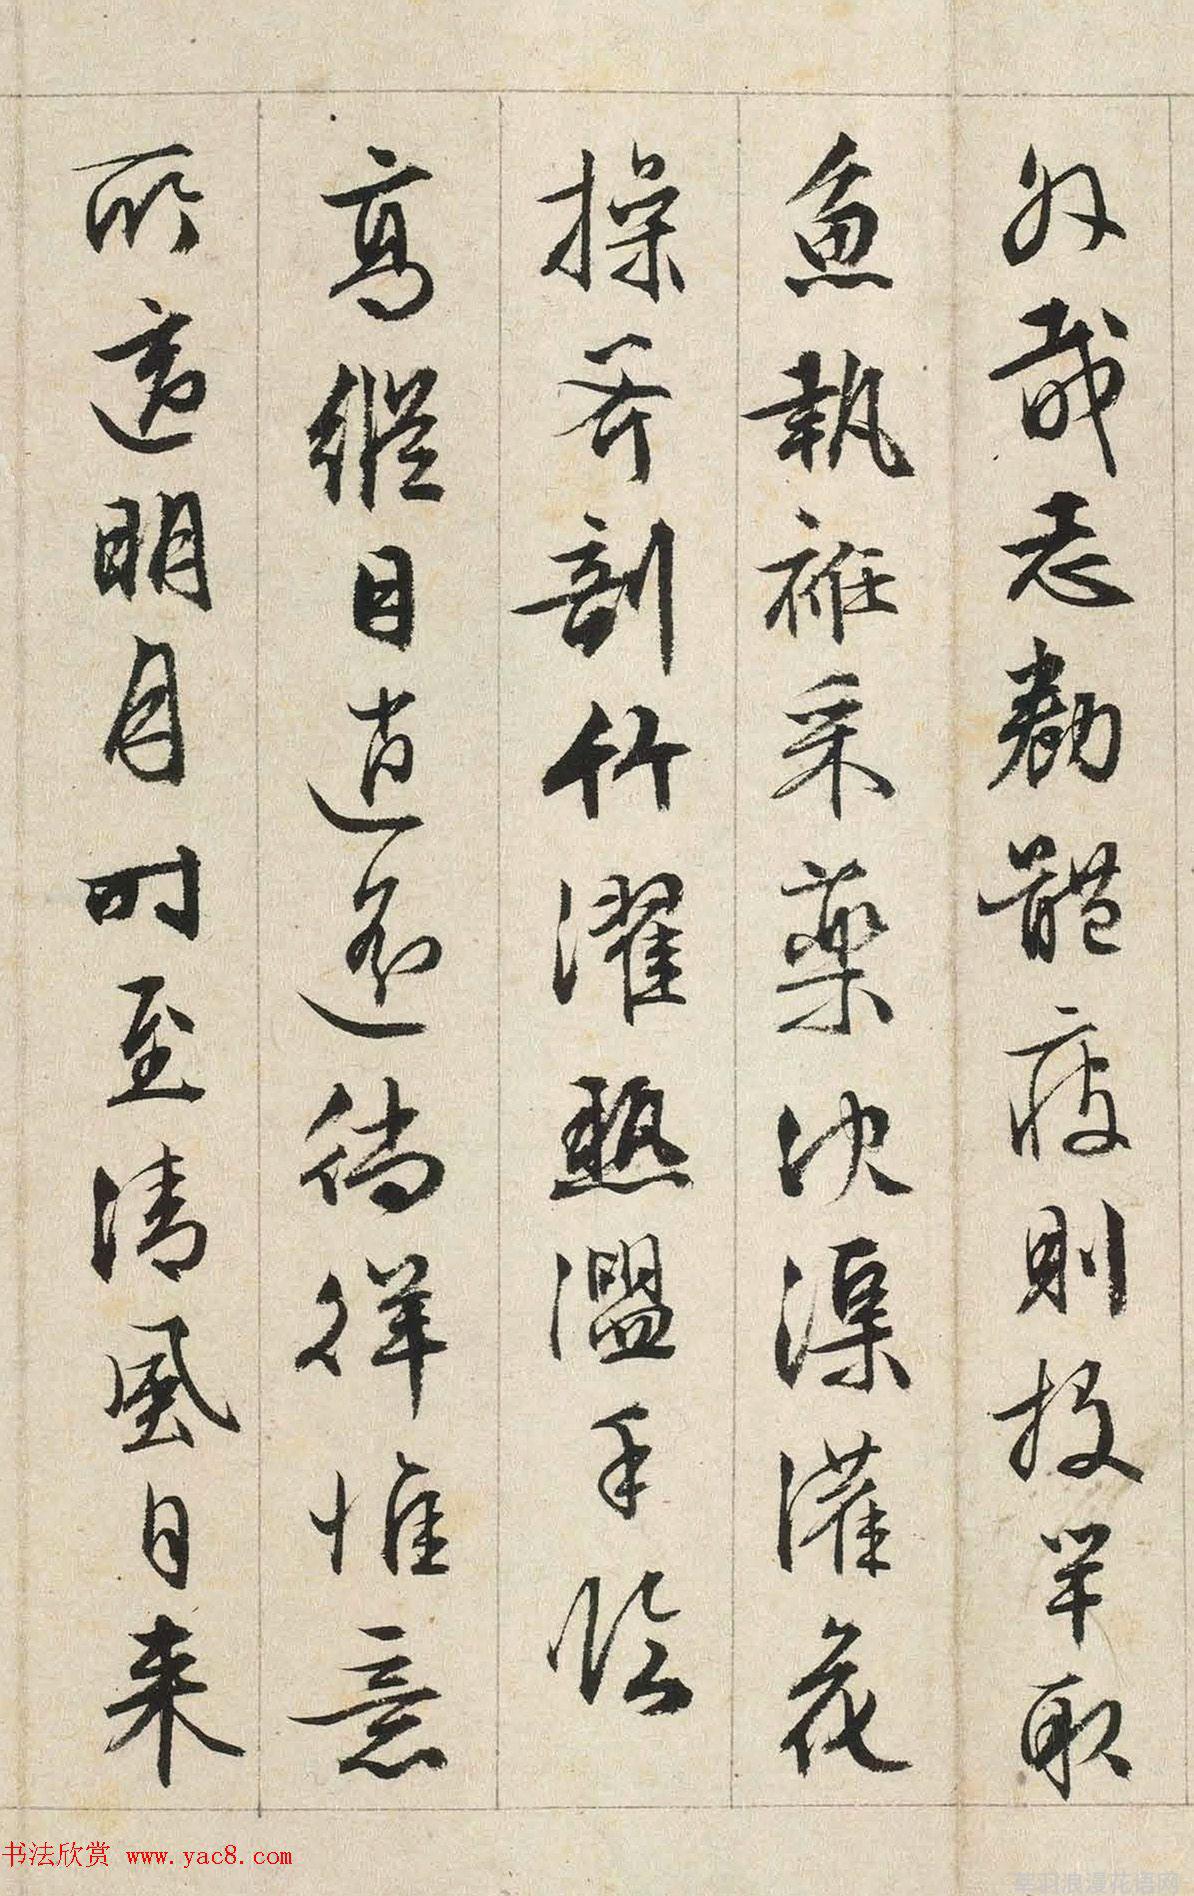 外哉志勌體疲則投竿取
魚執袵采藥決渠灌花
操斧剖竹濯熱盥手臨
高縱目逍遙徜徉惟意
所適明月时至清風自来
书法欣赏 www.yac8.com